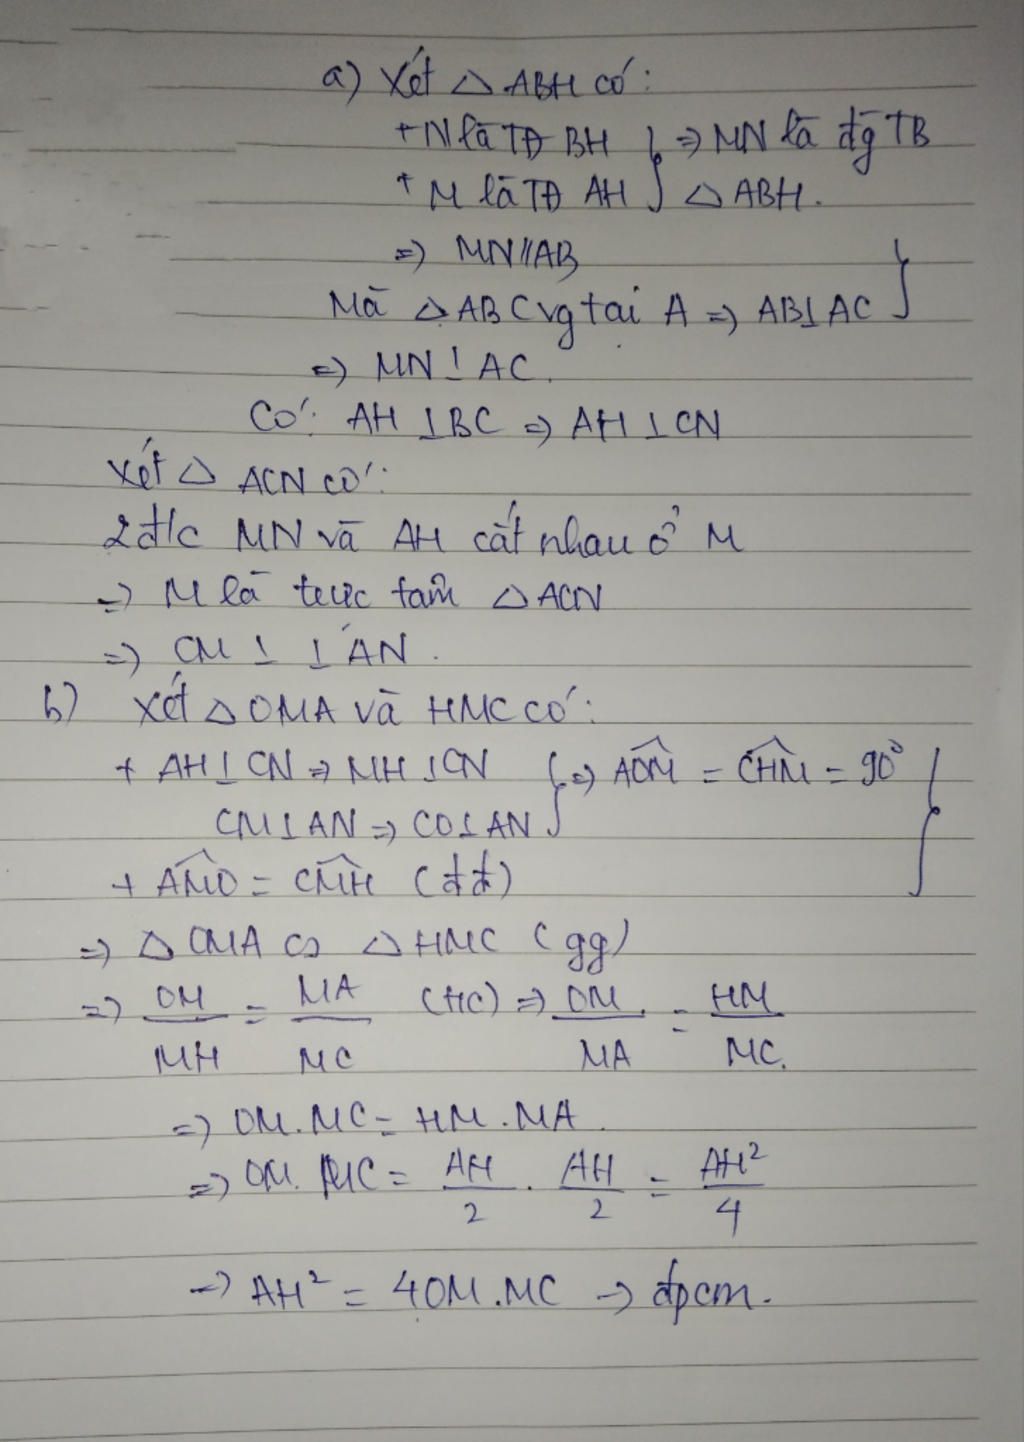 a) Xét △ ABH có:
+ N là TĐ BH } => MN là đg TB
+ M là TĐ AH } △ ABH.
=> MN // AB
Mà △ ABC vg tại A => AB ⊥ AC }
=> MN ⊥ AC.
Có: AH ⊥ BC => AH ⊥ CN
Xét △ ACN có:
2 đ/c MN và AH cắt nhau ở M
=> M là trực tâm △ ACN
=> CM ⊥ ⊥ AN.
b) Xét △ OMA và HMC có:
+ AH ⊥ CN => MH ⊥ CN } => AÔM = CĤM = 90°
CM ⊥ AN => CO ⊥ AN }
+ AM̂O = CM̂H (đđ)
=> △ OMA ∽ △ HMC (gg)
=> OM/MH = MA/MC (tC) => OM/MA = HM/MC.
=> OM.MC = HM.MA.
=> OM.MC = AH/2 . AH/2 = AH²/4
-> AH² = 4OM.MC -> đpcm.